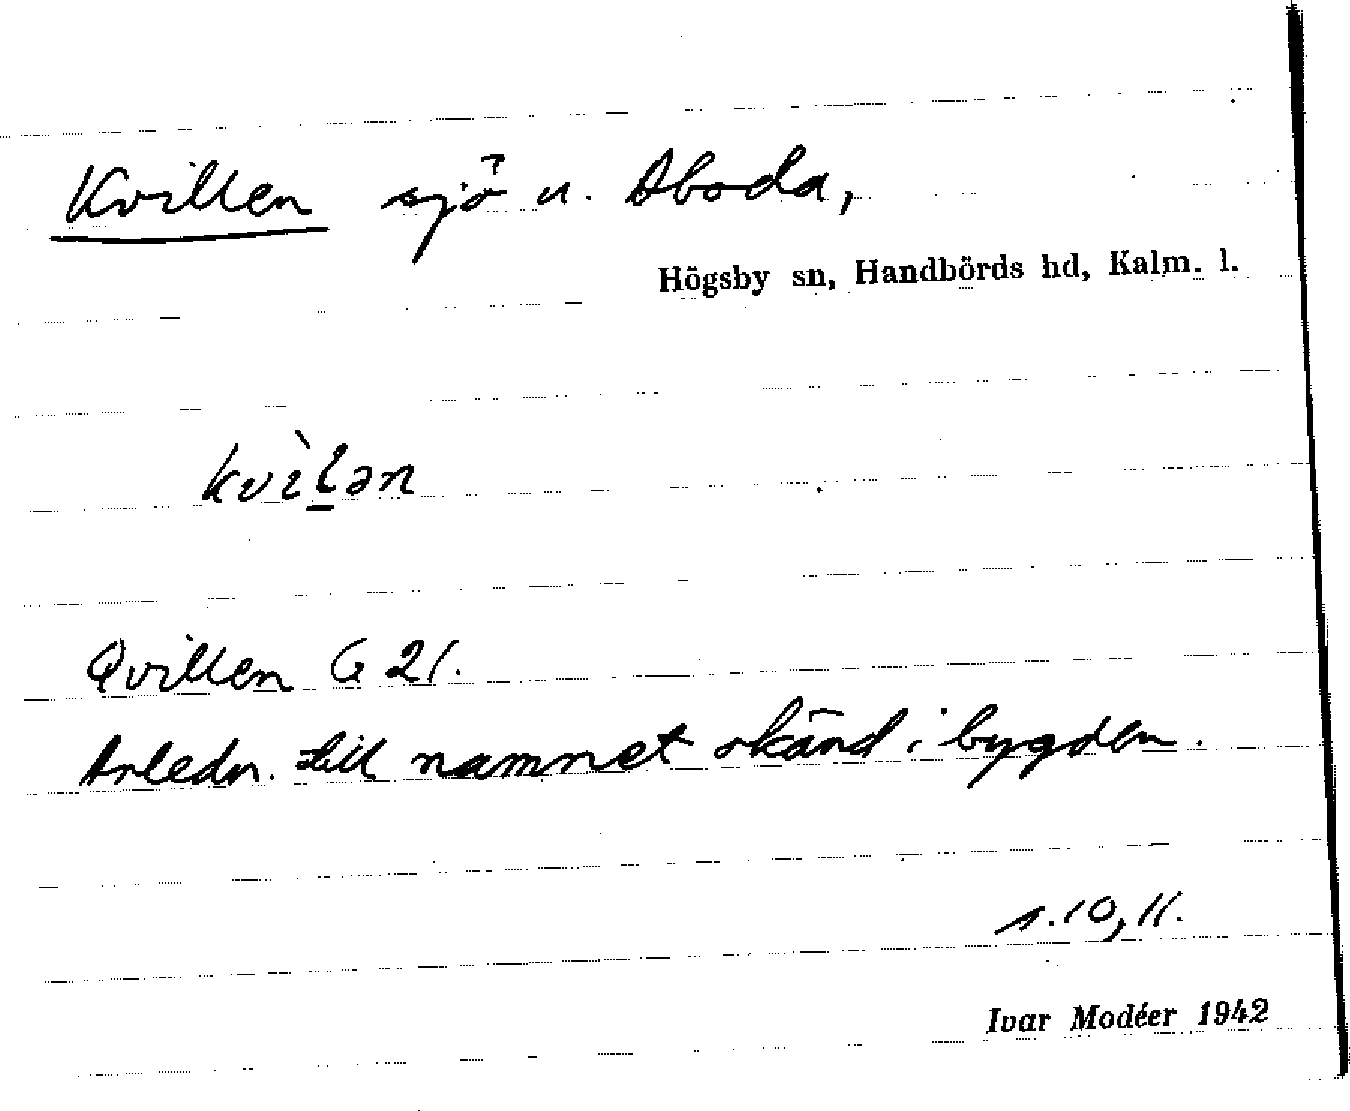 Kvillen sjö u. Aboda,
Högsby sn, Handbörds hd, Kalm. l.
kvìl̲ən
Qvillen G 21.
Anledn. till namnet okänd i bygden.
s. 10, 11.
Ivar Modéer 1942